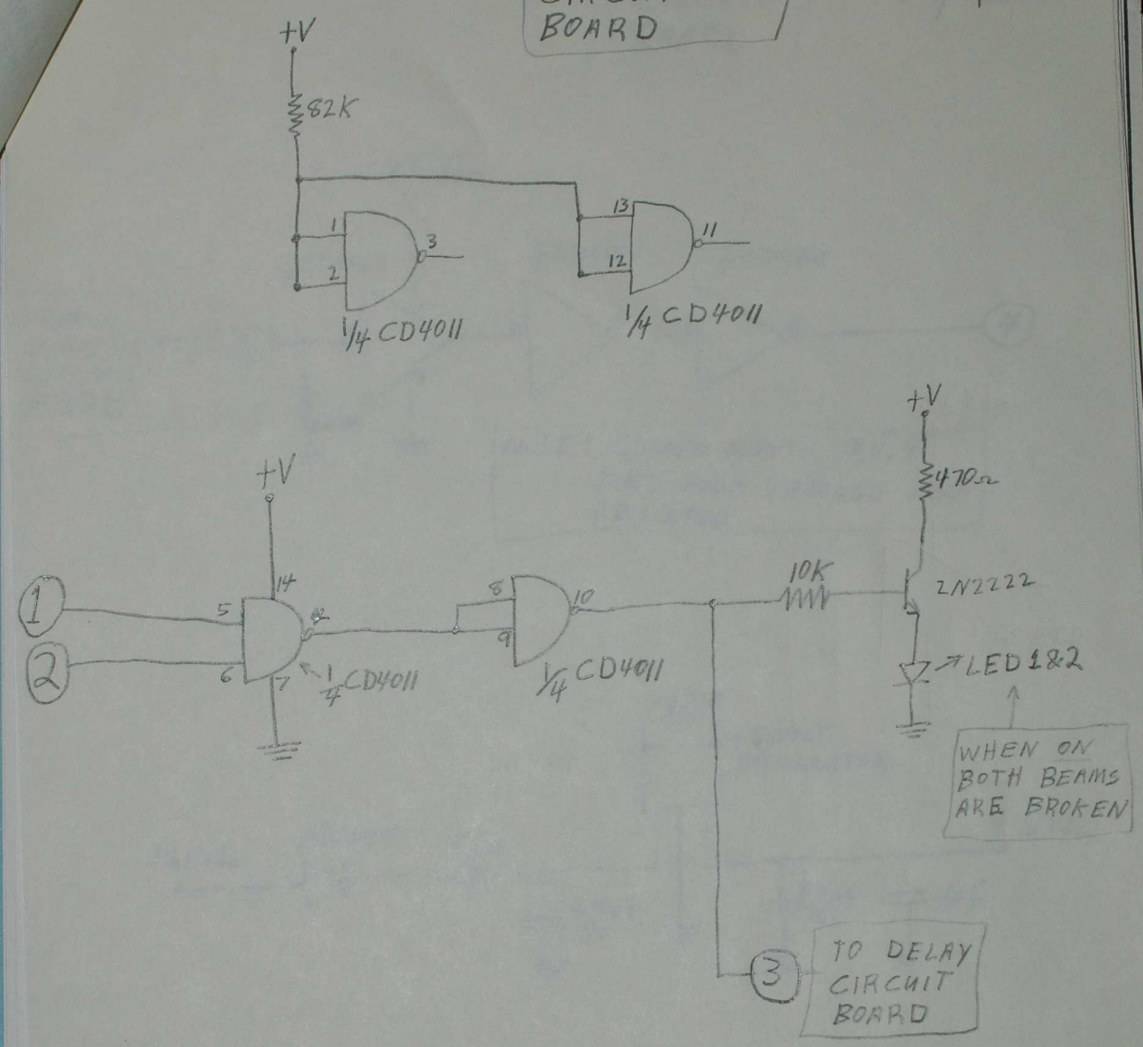 BOARD
+V
82K
1
2
3
1/4 CD4011
13
12
11
1/4 CD4011
+V
470Ω
2N2222
LED 1&2
WHEN ON
BOTH BEAMS
ARE BROKEN
+V
14
1
5
2
6
7
1/4 CD4011
8
9
10
1/4 CD4011
10K
3
TO DELAY
CIRCUIT
BOARD